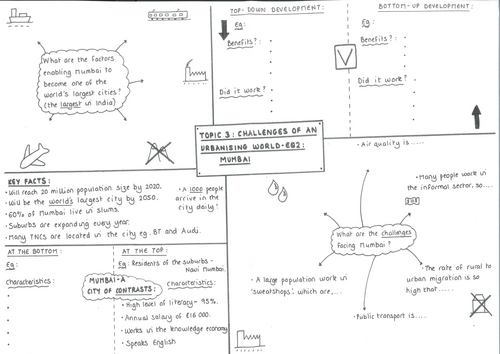 What are the factors
enabling Mumbai to
become one of the
world's largest cities?
(the largest in India)
TOP-DOWN DEVELOPMENT:
Eg:
Benefits?:
Did it work?
BOTTOM-UP DEVELOPMENT:
Eg:
Benefits?:
V
Did it work?
TOPIC 3: CHALLENGES OF AN
URBANISING WORLD-EQ2:
MUMBAI
KEY FACTS:
• Will reach 20 million population size by 2020.
• Will be the world's largest city by 2050.
• 60% of Mumbai live in slums.
• Suburbs are expanding every year.
• Many TNCs are located in the city eg. BT and Audi.
• A 1000 people
arrive in the
city daily!
AT THE BOTTOM:
Eg:
Characteristics:
MUMBAI-A
CITY OF CONTRASTS:
AT THE TOP:
Eg: Residents of the suburbs -
Navi Mumbai.
Characteristics:
• High level of literacy- 95%.
• Annual salary of £16 000.
• Works in the knowledge economy
• Speaks English
• Air quality is.....
• Many people work in
the informal sector, so....
What are the challenges
facing Mumbai?
• A large population work in
'sweatshops', which are....
• The rate of rural to
urban migration is so
high that .....
• Public transport is....